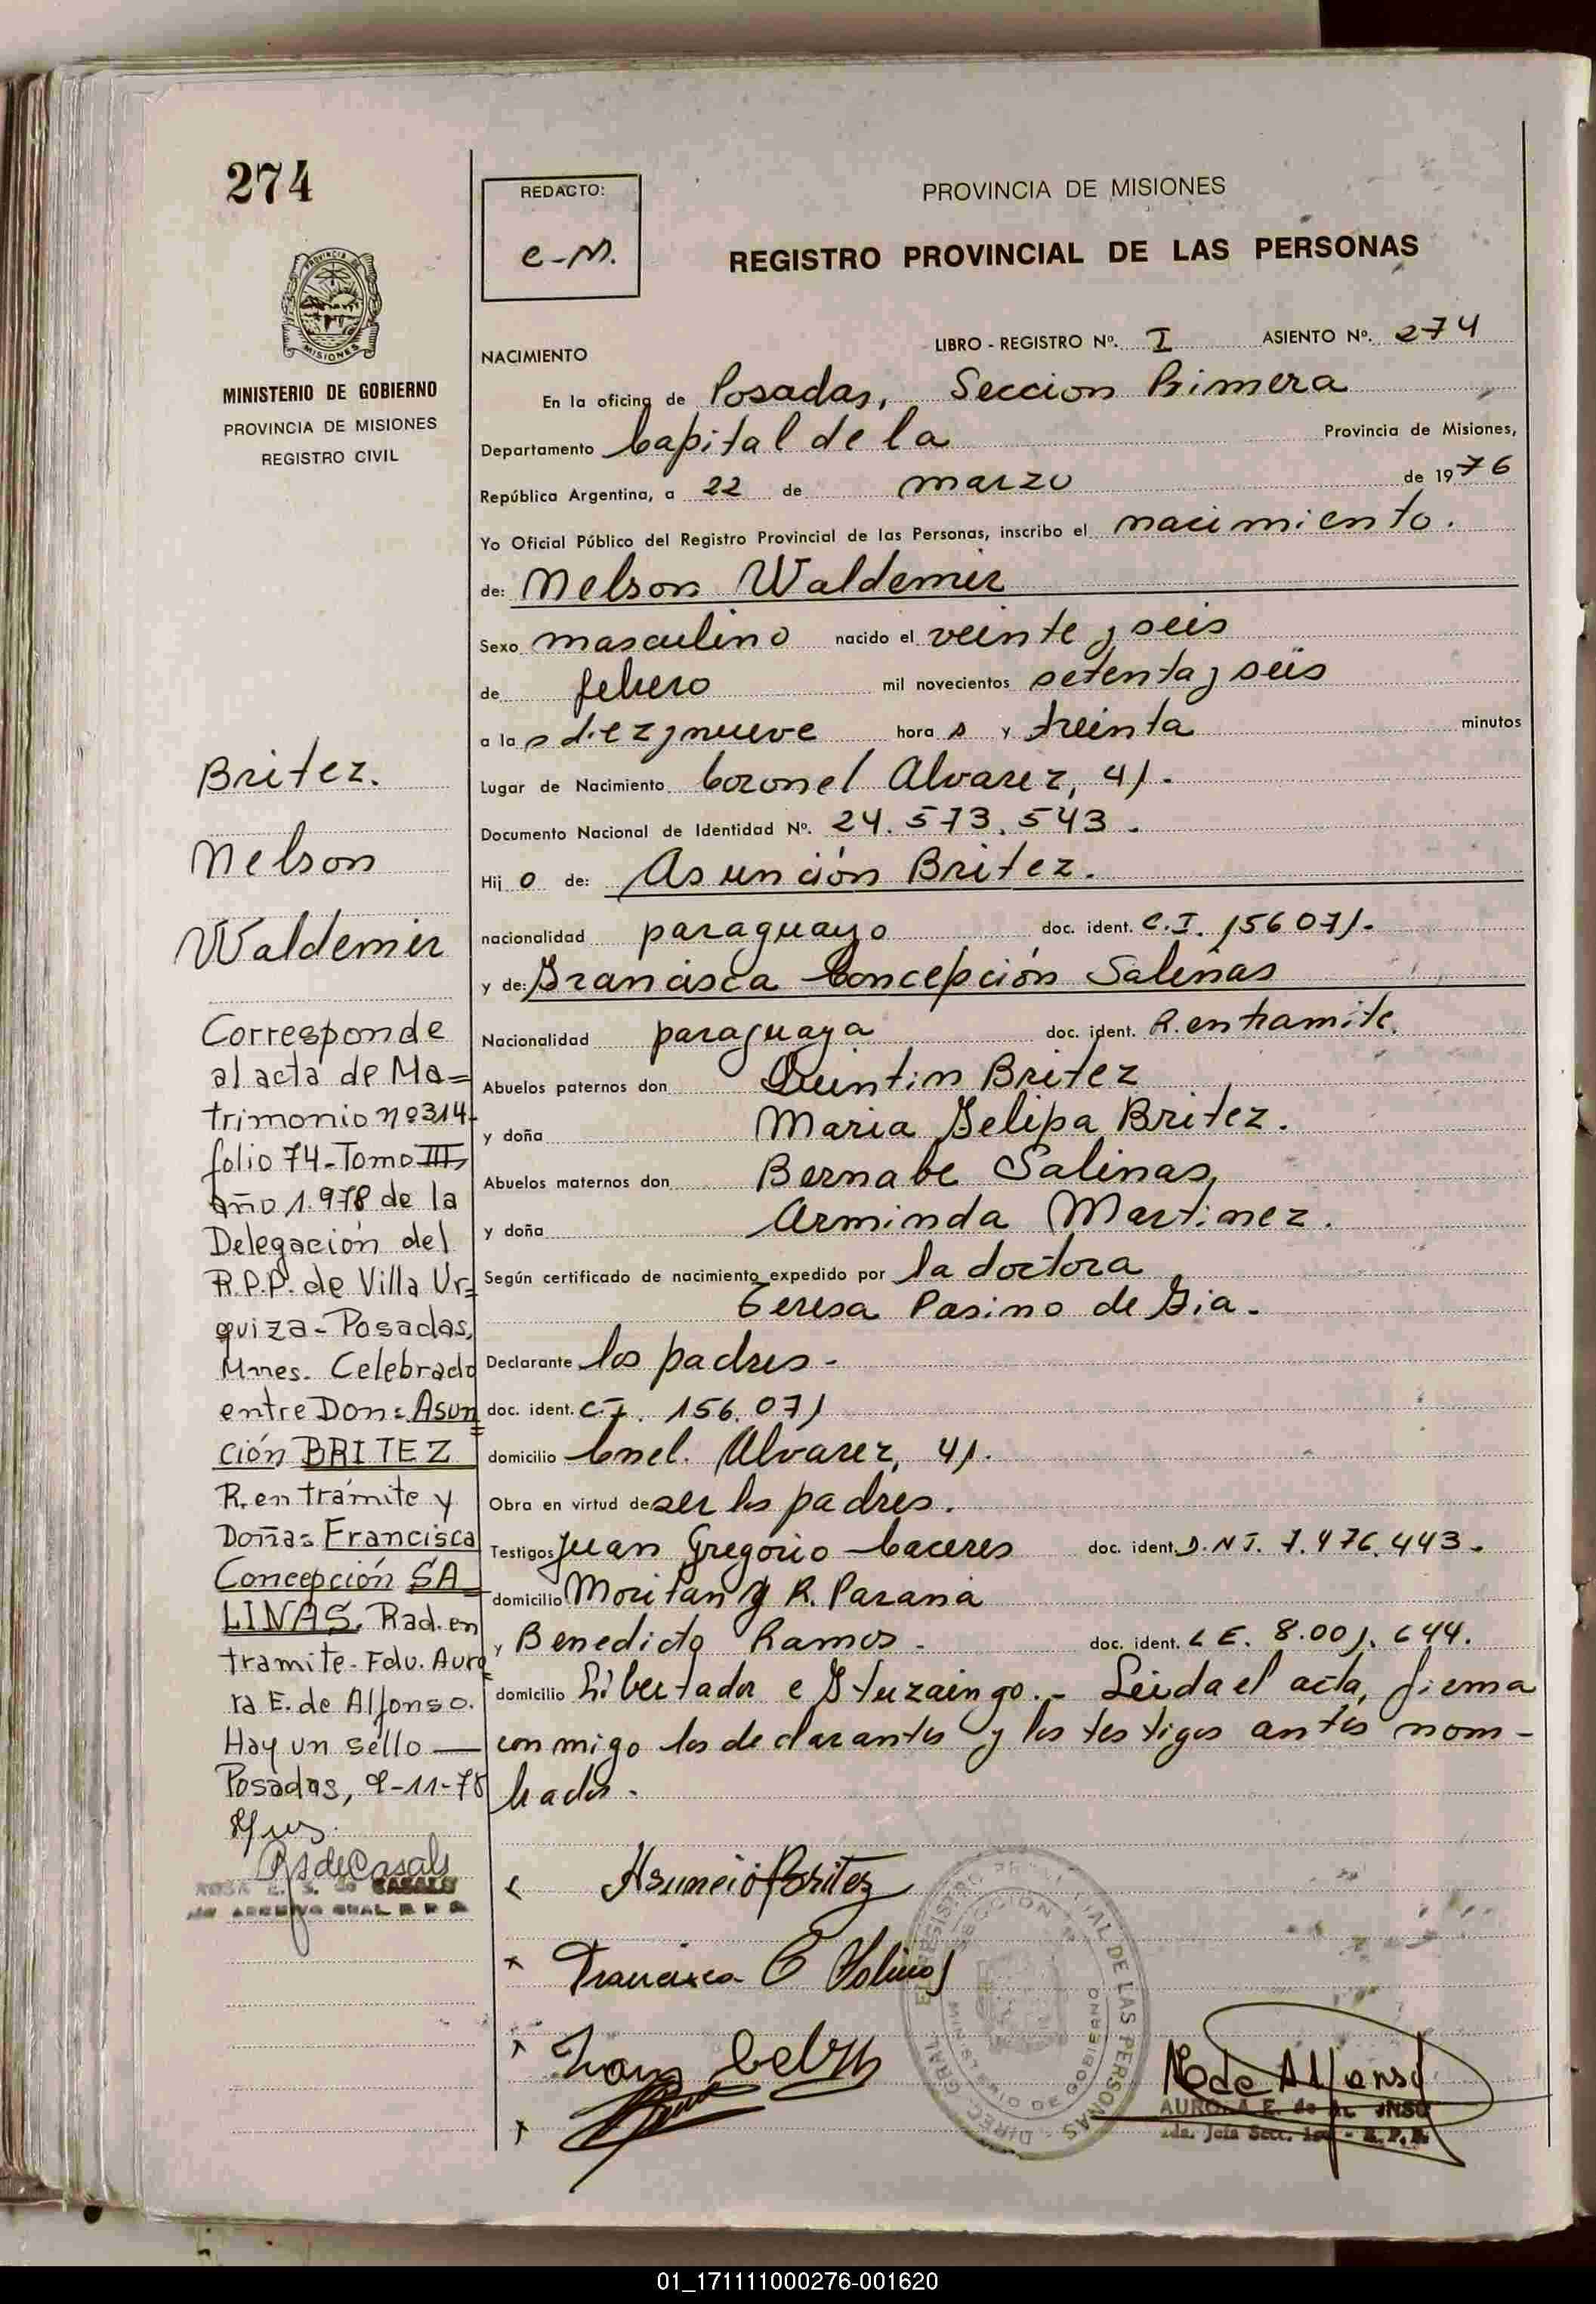 274
REDACTO:
e-M.
PROVINCIA DE MISIONES
REGISTRO PROVINCIAL DE LAS PERSONAS
PROVINCIA DE
MISIONES
MINISTERIO DE GOBIERNO
PROVINCIA DE MISIONES
REGISTRO CIVIL
LIBRO - REGISTRO Nº. I ASIENTO Nº. 274
NACIMIENTO
En la oficina de Posadas, Seccion Primera
Departamento Capital de la Provincia de Misiones,
República Argentina, a 22 de marzo de 1976
Yo Oficial Público del Registro Provincial de las Personas, inscribo el nacimiento.
de: Nelson Waldemir
Sexo masculino nacido el veinte y seis
de febrero mil novecientos setenta y seis
a las diez y nueve horas y treinta minutos
Lugar de Nacimiento Coronel Alvarez, 41.
Documento Nacional de Identidad Nº. 24.573.543.
Hijo de: Asunción Britez.
nacionalidad paraguayo doc. ident. C.I. 156071.
y de: Francisca Concepción Salinas
Nacionalidad paraguaya doc. ident. R. en tramite.
Abuelos paternos don Quintin Britez
y doña Maria Felipa Britez.
Abuelos maternos don Bernabe Salinas,
y doña Arminda Martinez.
Según certificado de nacimiento expedido por la doctora
Teresa Pasino de Gia.
Declarante los padres-
doc. ident. C.I. 156.071
domicilio Cnel. Alvarez, 41.
Obra en virtud de ser los padres.
Testigos Juan Gregorio Caceres doc. ident. D.N.I. 7.476.443.
domicilio Moritan y R. Parana
y Benedicto Ramos. doc. ident. L E. 8.001.644.
domicilio Libertador e Ituzaingo.- Leida el acta, firma
conmigo los declarantes y los testigos antes nom-
brados.
Britez.
Nelson
Waldemir
Corresponde
al acta de Ma=
trimonio nº 314-
folio 74-Tomo III,
año 1.978 de la
Delegación del
R.P.P. de Villa Ur=
quiza- Posadas,
Mnes. Celebrado
entre Don: Asun=
ción BRITEZ
R. en trámite y
Doña: Francisca
Concepción SA=
LINAS. Rad. en
tramite- Fdo. Auro=
ra E. de Alfonso.
Hay un sello —
Posadas, 9-11-78
de Casals
ROSA E. S. de CASALS
ARCHIVO GRAL R. P. P.
Asunció Britez
Francisca C Salinas
REGISTRO PROVINCIAL DE LAS PERSONAS
DIREC. GRAL.
SECCION 1ª
MINISTERIO DE GOBIERNO
de Alfonso
AURORA E. de ALFONSO
2da. Jefa Secc. 1ra - R.P.P.
01_171111000276-001620